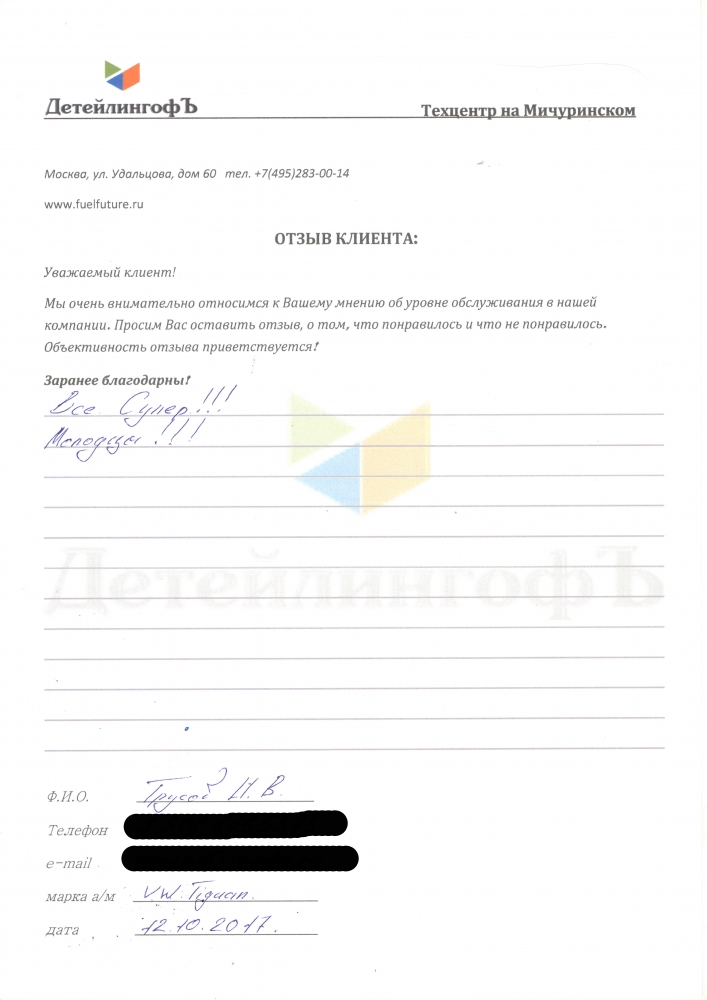 ДетейлингофЪ
Техцентр на Мичуринском
Москва, ул. Удальцова, дом 60 тел. +7(495)283-00-14
www.fuelfuture.ru
ОТЗЫВ КЛИЕНТА:
Уважаемый клиент!
Мы очень внимательно относимся к Вашему мнению об уровне обслуживания в нашей
компании. Просим Вас оставить отзыв, о том, что понравилось и что не понравилось.
Объективность отзыва приветствуется!
Заранее благодарны!
Все Супер!!!
Молодцы!!!
ДетейлингофЪ
Ф.И.О. В.
Телефон
e-mail
марка а/м VW. Tiguan.
дата 12.10.2017.